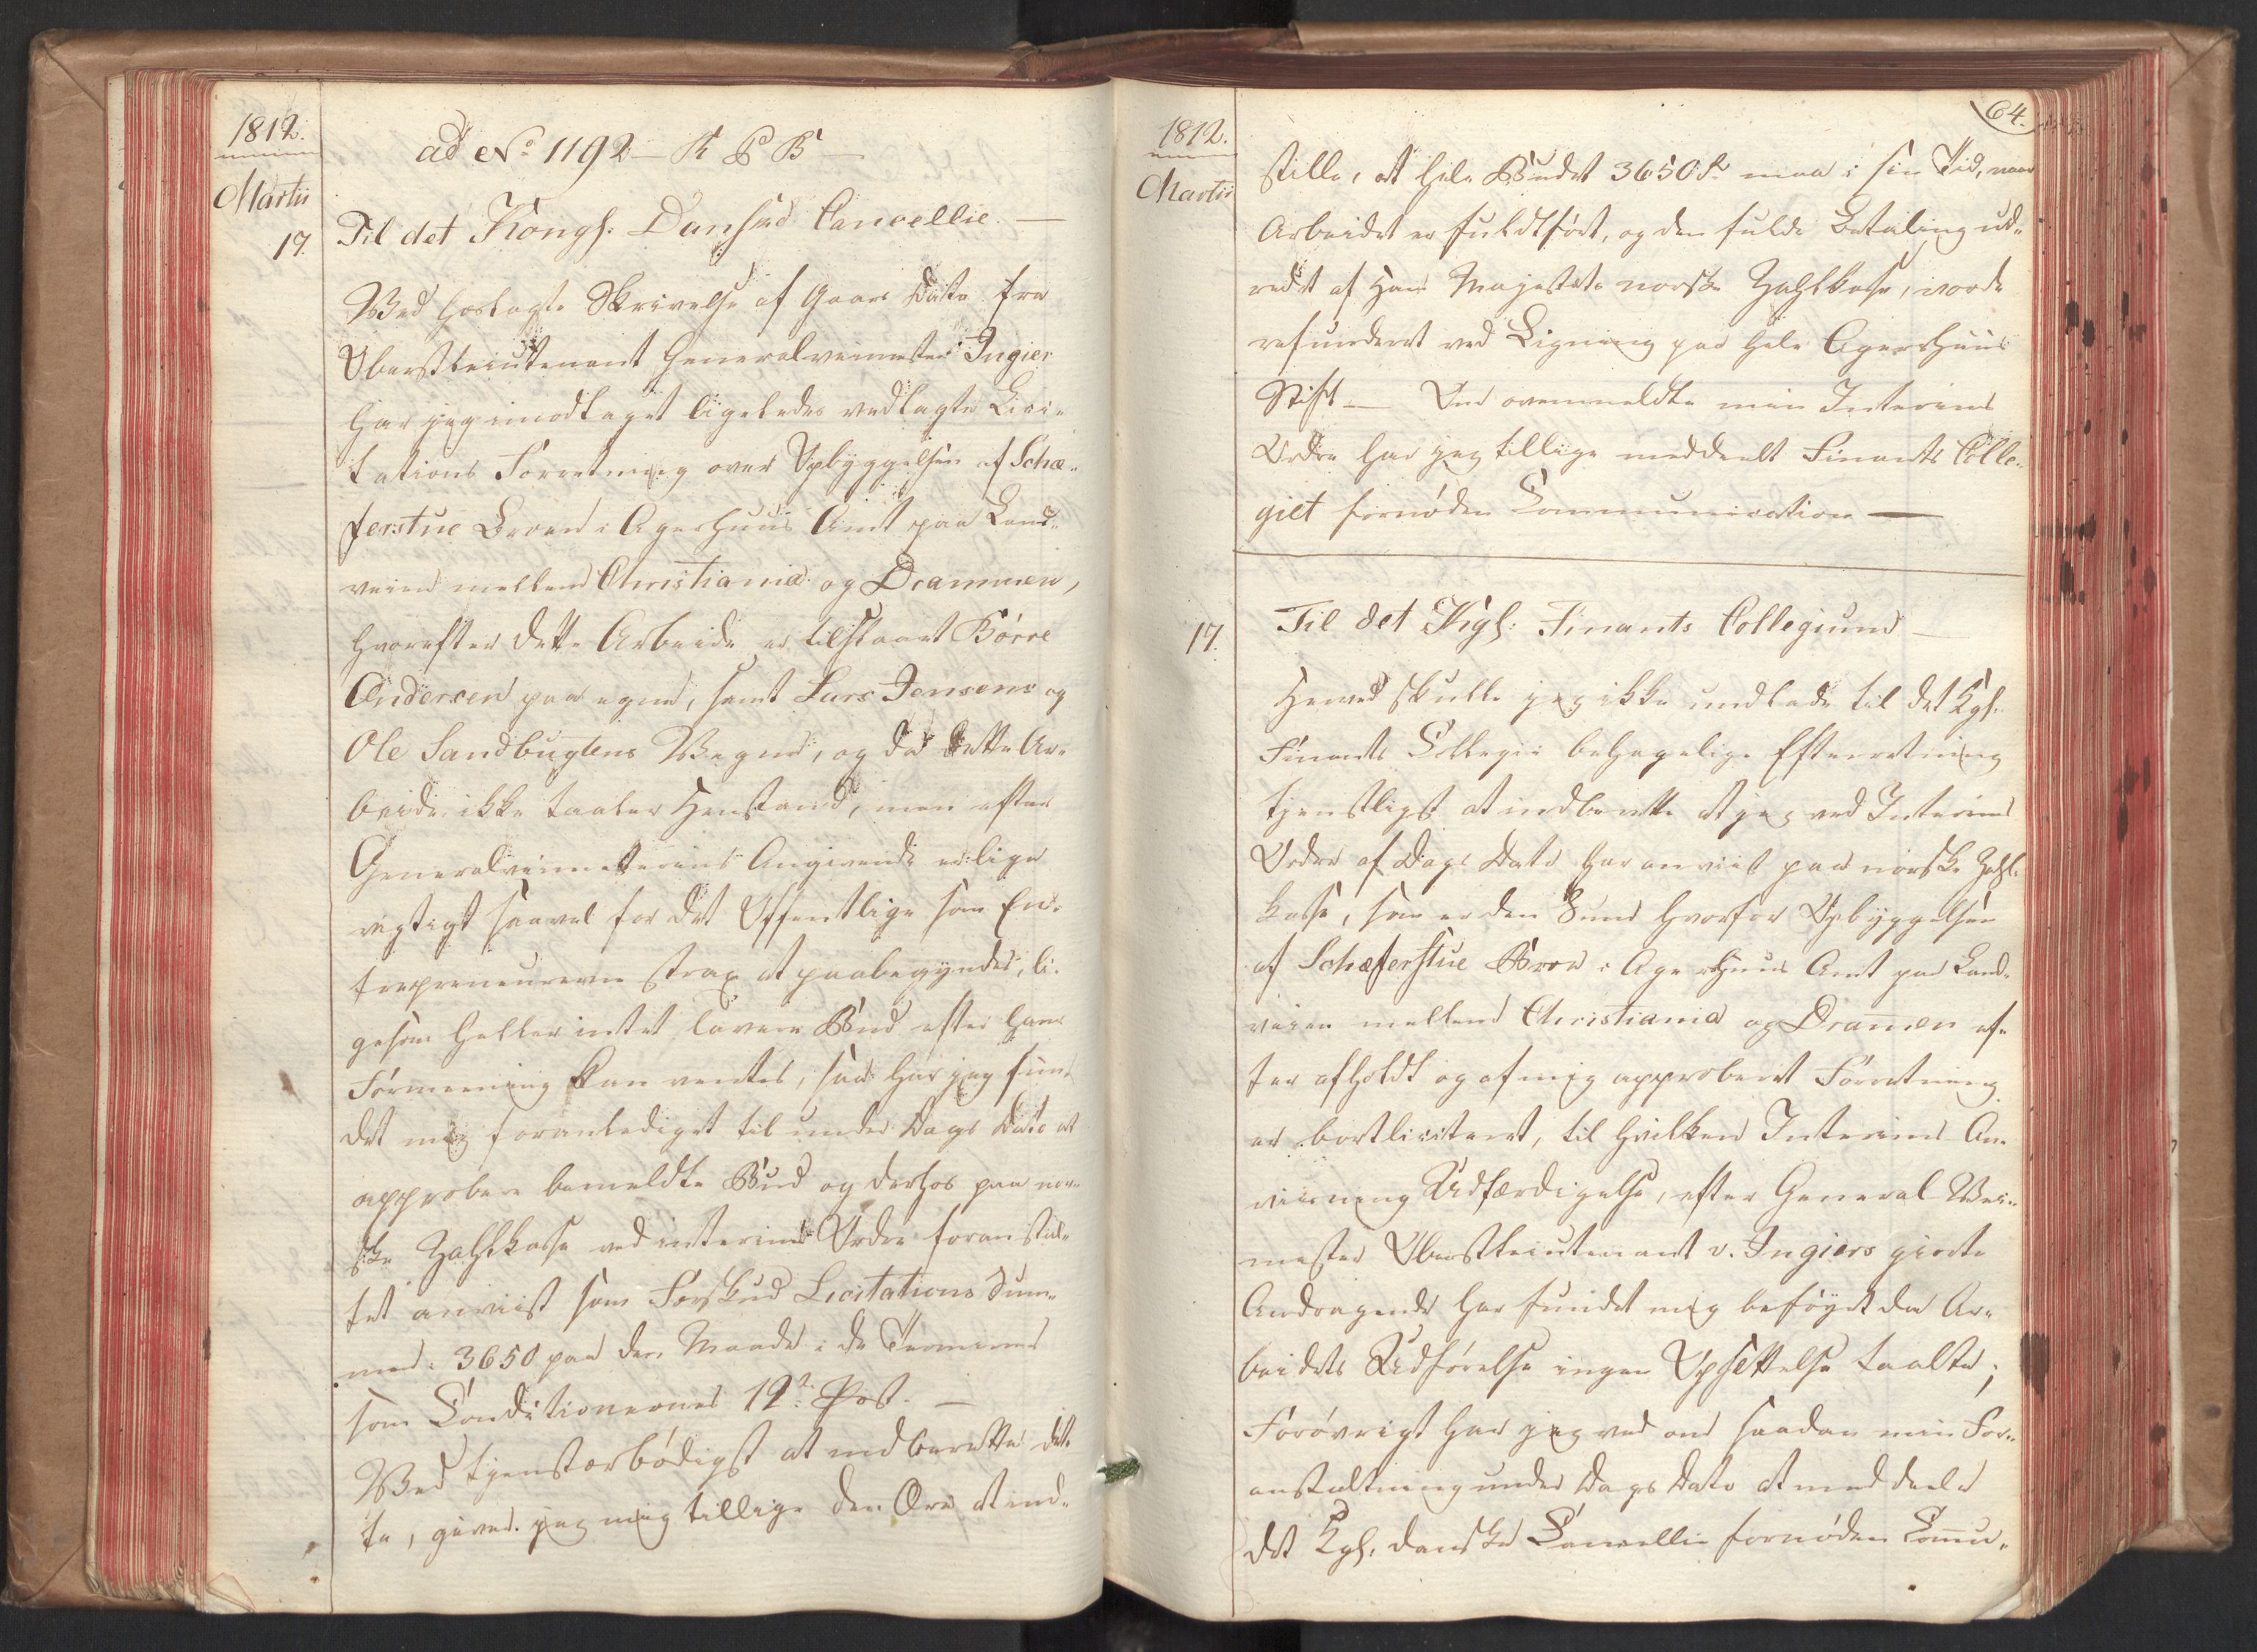 1812.
Martii
17.
ad No. 1192 - K P B -
Til det Kongl. Danske Cancellie. -
Ved hoslagte Skrivelse af Gaars Dato fra
Oberstleiutenant Generalveimester Ingier
har jeg imodtaget ligeledes vedlagte Lici-
tations Forretning over Opbyggelsen af Schæ-
ferstue Broen i Agershuus Amt paa Land-
veien mellem Christiania og Drammen,
hvorefter dette Arbeide er tilslaaet Börre
Andersen paa egne, samt Lars Jensens og
Ole Sandbugtens Vegne, og da dette Ar-
beide ikke taaler Henstand, men efter
Generalveimesterens Angivende er lige
vigtigt saavel for det Offentlige som En-
trepreneurerne strax at paabegyndes, li-
gesom heller intet lavere Bud efter hans
Formeening kan ventes, saa har jeg fun-
det mig foranlediget til under Dags Dato at
approbere bemeldte Bud og derhos paa nor-
ske Zahlkasse ved interims Ordre foranstal-
tet anviist som Forskud Licitations Sum-
men 3650 paa den Maade i de Terminer
som Conditionernes 12te Post. -
Ved tjenstærbödigst at indberette det-
te, giver jeg mig tillige den Ære at ind-
1812.
Martii
64.
stille, at hele Budet 3650 rd maa i sin Tid, naar
Arbeidet er fuldfört, og den fulde Betaling ud-
redet af Hans Majestæts norske Zahlkasse, vorde
refunderet ved Ligning paa hele Agershuus
Stift - Om ovenmeldte min Interims
Ordre har jeg tillige meddeelt Finants Colle-
giet fornöden Communication -
17.
Til det Kgl: Finants Collegium -
Herved skulle jeg ikke undlade til det Kgl.
Finants Collegii behagelige Efterretning
tjenstligst at indberette at jeg ved Interims
Ordre af Dags Dato har anviist paa norske Zahl-
kasse, som er den Sum hvorfor Opbyggelsen
af Schæferstue Broe i Agershuus Amt paa Land-
veien mellem Christiania og Dramen ef-
ter afholdt og af mig approberet Forretning
er bortliciteret, til hvilken Interims An-
viisning Udfærdigelse, efter General Vei-
mester Oberstleiutenant v. Ingiers giorte
Andragende har fundet mig beföyet da Ar-
beidets Udförelse ingen Opsettelse taalte;
Forövrigt har jeg ved om saadan min For-
anstaltning under Dags Dato at meddeele
det Kgl. danske Cancellie fornöden Comu-